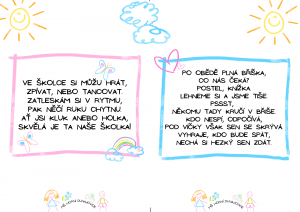 VE ŠKOLCE SI MŮŽU HRÁT,
ZPÍVAT, NEBO TANCOVAT.
ZATLESKÁM SI V RYTMU,
PAK NĚČÍ RUKU CHYTNU.
AŤ JSI KLUK ANEBO HOLKA,
SKVĚLÁ JE TA NAŠE ŠKOLKA!
PO OBĚDĚ PLNÁ BŘÍŠKA,
CO NÁS ČEKÁ?
POSTEL, KNÍŽKA.
LEHNEME SI A JSME TIŠE
PSSST,
NĚKOMU TADY KRUČÍ V BŘIŠE.
KDO NESPÍ, ODPOČÍVÁ,
POD VÍČKY VŠAK SEN SE SKRÝVÁ.
VYHRAJE, KDO BUDE SPÁT,
NECHÁ SI HEZKÝ SEN ZDÁT.